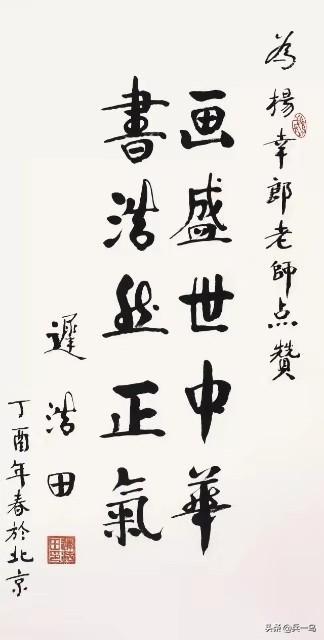 为楊幸郎老師点贊
画盛世中華
書浩然正氣
遲浩田
丁酉年春於北京
头条@兵一鸟